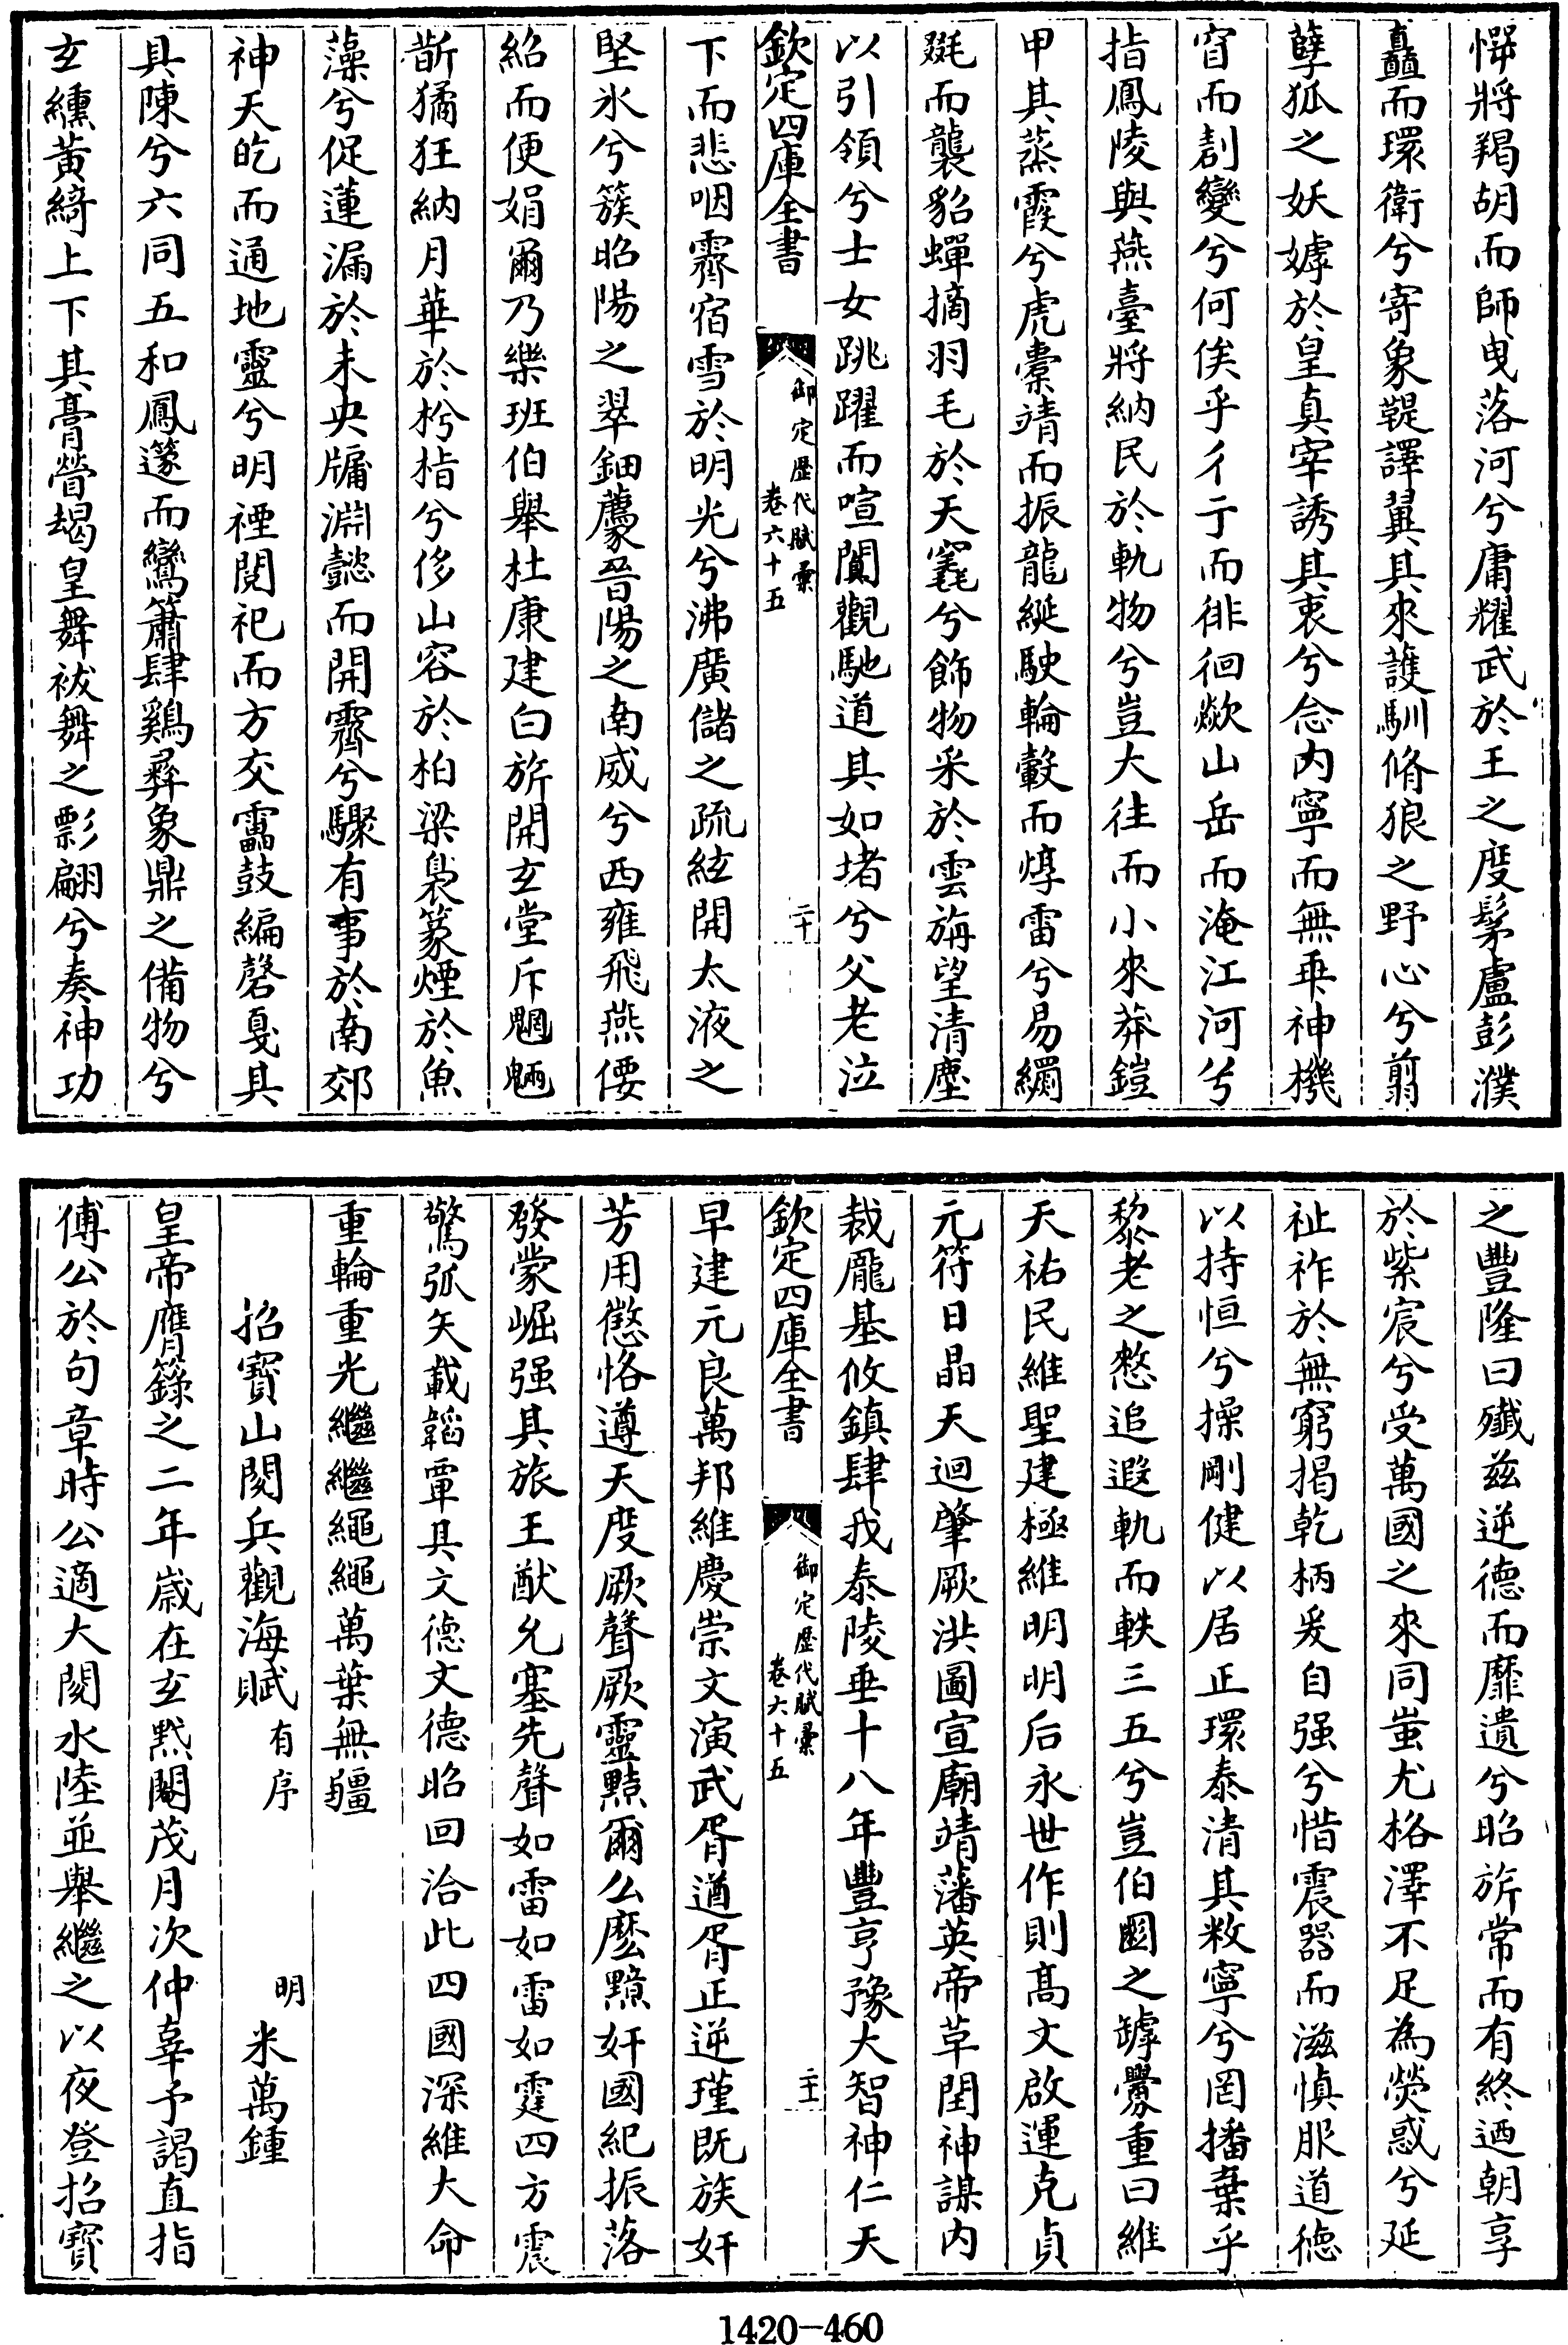 憚將羯胡而師曳落河兮庸耀武於王之度髳盧彭濮
纛而環衛兮寄象鞮譯翼其來護馴脩狼之野心兮翦
孽狐之妖嫭於皇真宰誘其衷兮念内寧而無乖神機
窅而創變兮何俟乎彳亍而徘徊歘山岳而淹江河兮
指鳳陵與燕臺將納民於軌物兮豈大往而小來莽鎧
甲其蒸霞兮虎櫜靖而振龍綖駛輪轂而焞雷兮易繝
毾而襲貂蟬摘羽毛於天毳兮飾物采於雲旃望清塵
以引領兮士女跳躍而喧闐觀馳道其如堵兮父老泣
欽定四庫全書
御定歷代賦彙
卷六十五
二十
下而悲咽霽宿雪於明光兮沸廣儲之疏絃開太液之
堅氷兮簇昭陽之翠鈿薦晉陽之南威兮西雍飛燕僂
紿而便娟爾乃樂班伯舉杜康建白旂開玄堂斥魍魎
斮獝狂納月華於枍栺兮侈山容於柏梁裊篆煙於魚
藻兮促蓮漏於未央牖淵懿而開霽兮驟有事於南郊
神天訖而通地靈兮明禋閟祀而方交靁鼓編磬戛具
具陳兮六同五和鳳籧而鸞簫肆鷄彞象鼎之備物兮
玄纁黄綺上下其膏膋朅皇舞祓舞之彯翩兮奏神功
之豐隆曰殲兹逆德而靡遺兮昭旂常而有終迺朝享
於紫宸兮受萬國之來同蚩尤格澤不足為熒惑兮延
祉祚於無窮掲乾柄爰自强兮惜震器而滋愼服道德
以持恒兮操剛健以居正環泰清其敉寧兮罔播棄乎
黎老之憖追遐軌而軼三五兮豈伯圖之罅釁重曰維
天祐民維聖建極維明明后永世作則髙文啟運克貞
元符日晶天迴肇厥洪圖宣廟靖藩英帝草閏神謀内
裁龎基攸鎮肆我泰陵垂十八年豐亨豫大智神仁天
欽定四庫全書
御定歷代賦彙
卷六十五
二十一
早建元良萬邦維慶崇文演武胥遒胥正逆瑾既族奸
芳用懲恪遵天度厥聲厥靈黠爾么麽黥奸國紀振落
發蒙崛强其旅王猷允塞先聲如雷如雷如霆四方震
驚弧矢載韜覃具文德文德昭回洽此四國深維大命
重輪重光繼繼繩繩萬葉無疆
招寶山閱兵觀海賦有序
明
米萬鍾
皇帝膺籙之二年歲在玄黓閹茂月次仲辜予謁直指
傅公於句章時公適大閱水陸並舉繼之以夜登招寶
1420-460